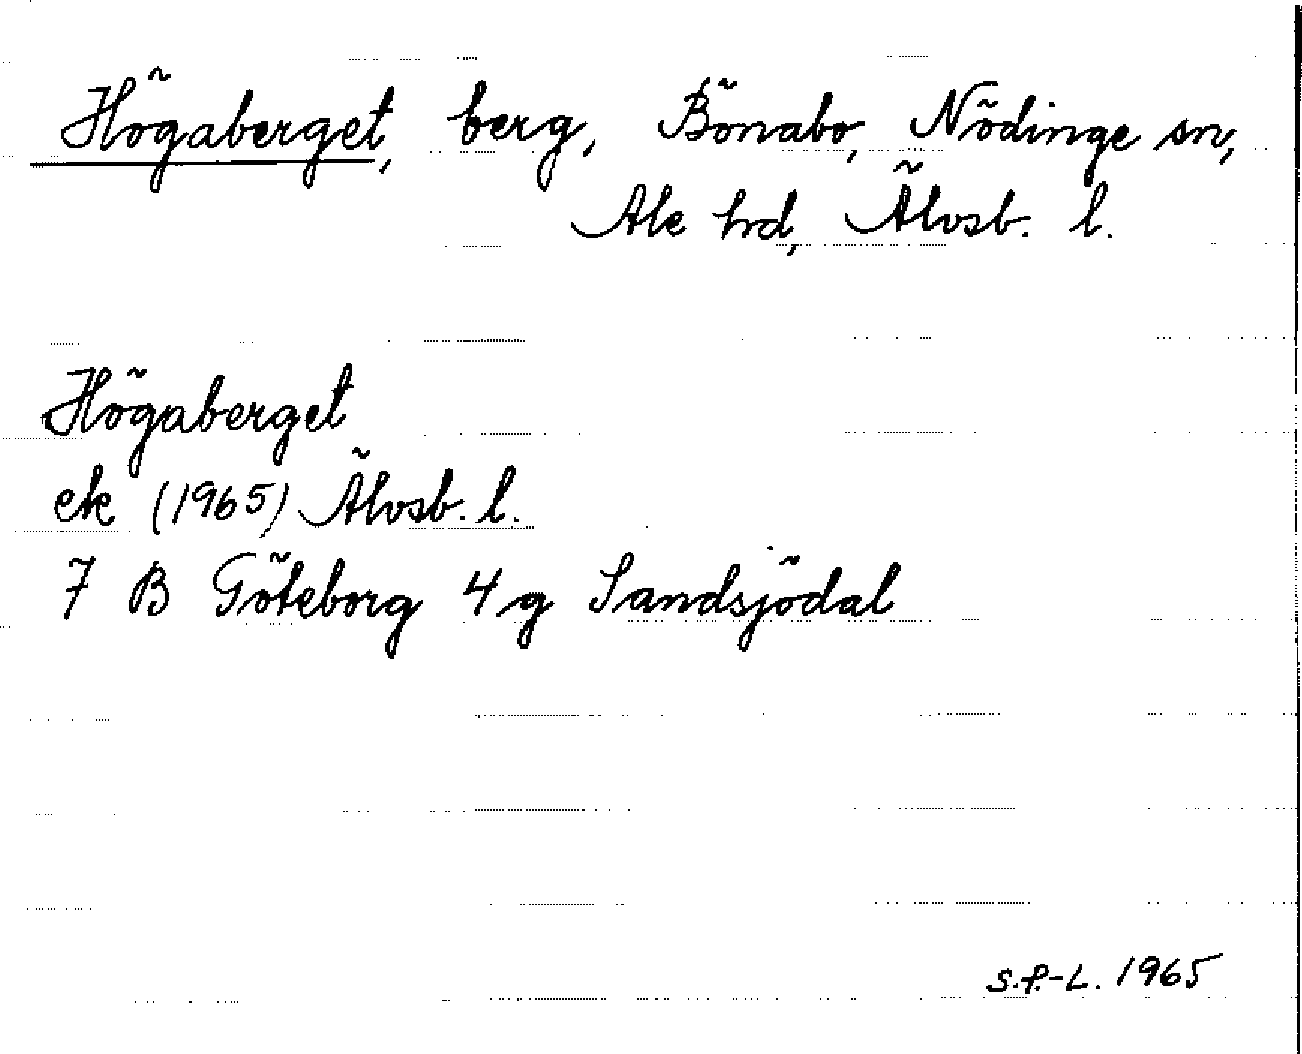 Högaberget, berg, Bönabo, Nödinge sn,
Ale hd, Älvsb. l.
Högaberget
ek (1965) Älvsb. l.
7 B Göteborg 4 g Sandsjödal
S.P.-L. 1965